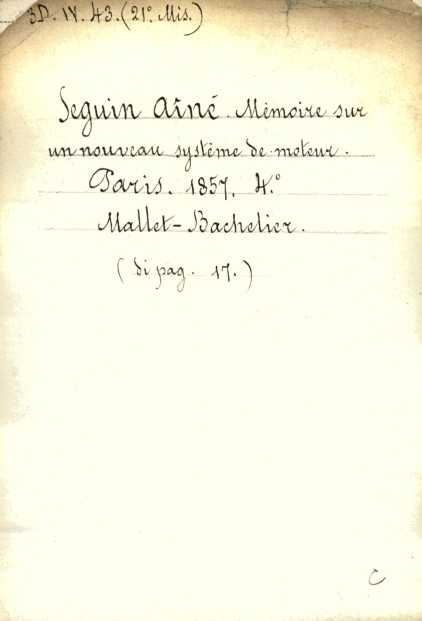 3D. IV. 43. (21° Mis.)
Seguin Aîné. Mémoire sur
un nouveau système de moteur.
Paris. 1857. 4.°
Mallet-Bachelier.
(di pag. 17.)
C